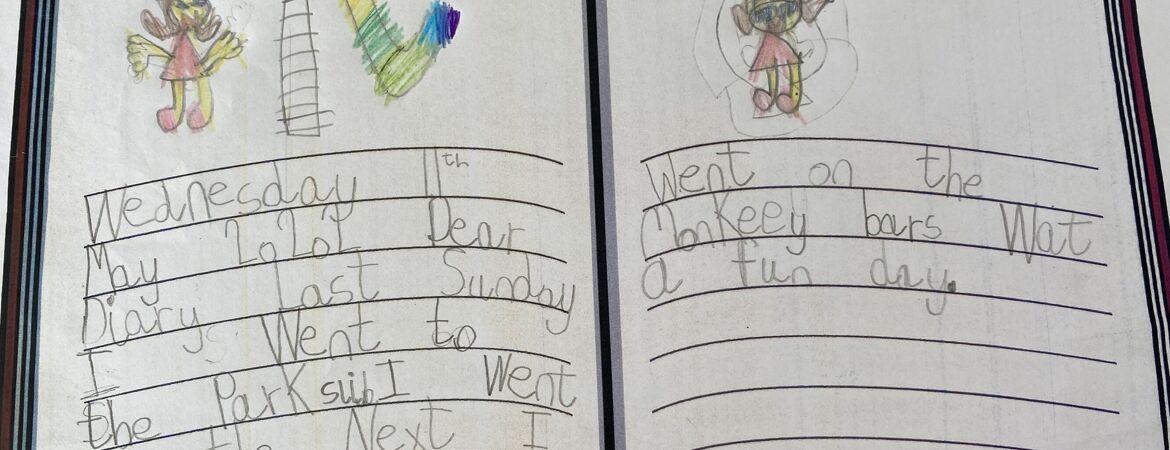 Wednesday 11th
May Dear
Diary Last Sunday
I Went to
the Park I Went
the Next I
Went on the
Monkeey bars Wat
a fun day.